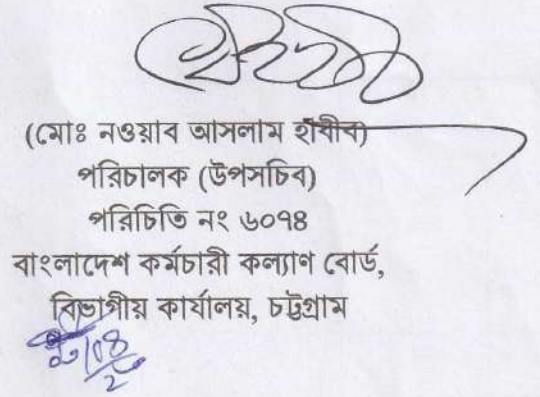 (মোঃ নওয়াব আসলাম হাবীব)
পরিচালক (উপসচিব)
পরিচিতি নং ৬০৭৪
বাংলাদেশ কর্মচারী কল্যাণ বোর্ড,
বিভাগীয় কার্যালয়, চট্টগ্রাম